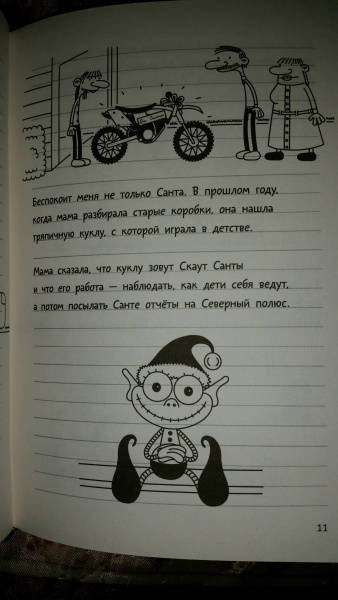 Беспокоит меня не только Санта. В прошлом году,
когда мама разбирала старые коробки, она нашла
тряпичную куклу, с которой играла в детстве.
Мама сказала, что куклу зовут Скаут Санты
и что его работа — наблюдать, как дети себя ведут,
а потом посылать Санте отчёты на Северный полюс.
11